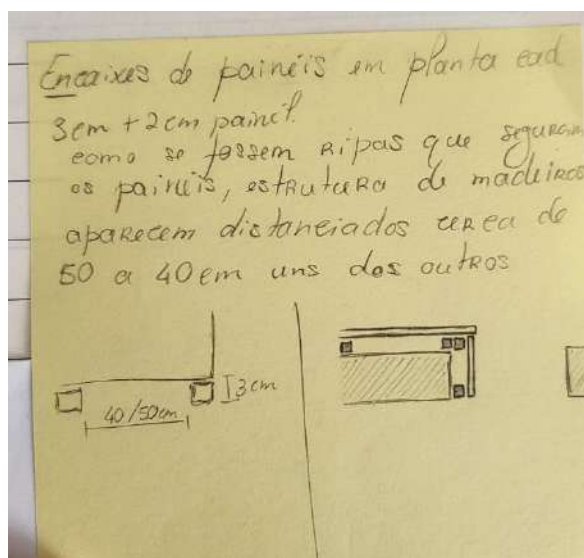 Encaixes de painéis em planta cad
3cm + 2cm painel.
como se fossem ripas que seguram
os painéis, estrutura de madeiros
aparecem distanciados cerca de
50 a 40cm uns dos outros
3cm
40/50cm